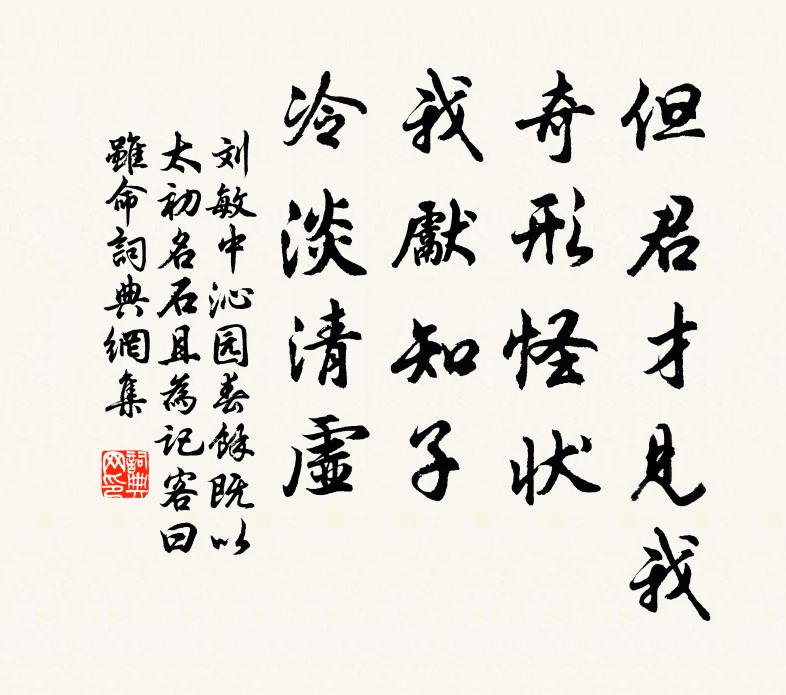 但君才見我
奇形怪状
我獻知子
冷淡清虛
刘敏中沁园春餘既以
太初名石且為记客曰
雖命詞典網集
詞典网印